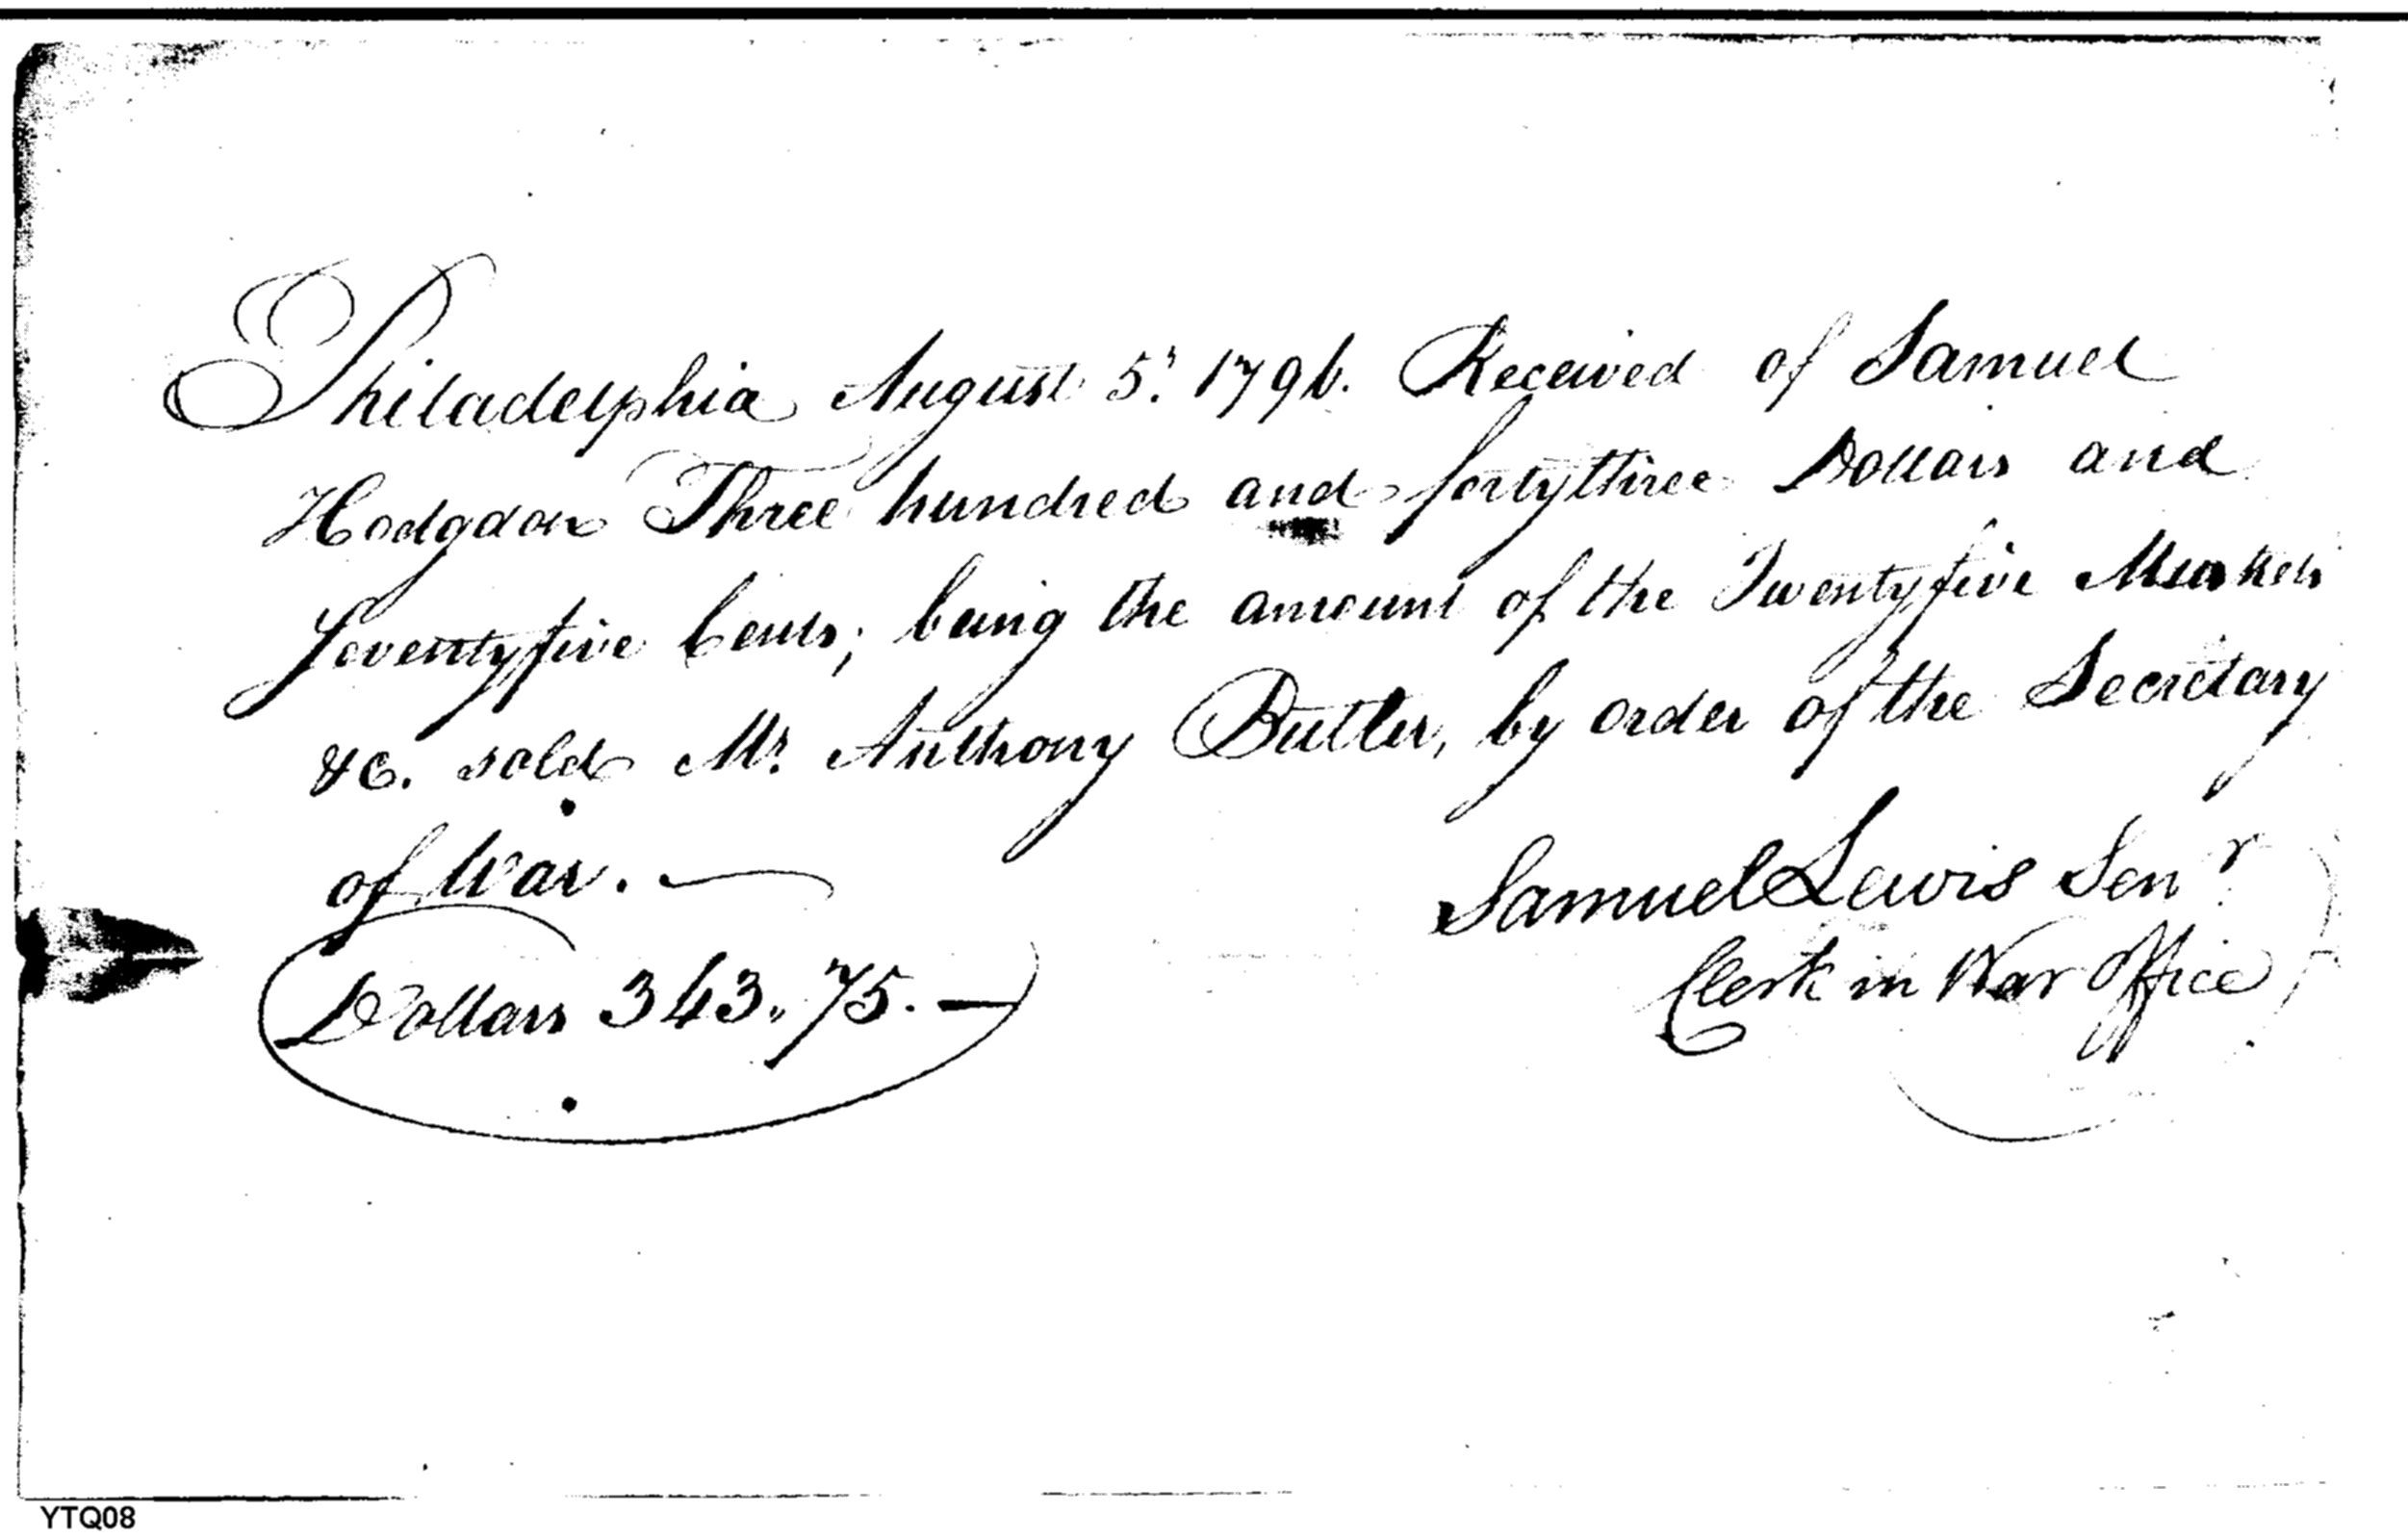 Philadelphia August 5.t 1796. Received of Samuel
Hodgdon Three hundred and fortythree Dollars and
Seventyfive Cents; being the amount of the Twentyfive Muskets
&c. sold Mr. Anthony Butler, by order of the Secretary
of War.
Samuel Lewis Senr
Clerk in War Office
Dollars 343,,75.—
YTQ08